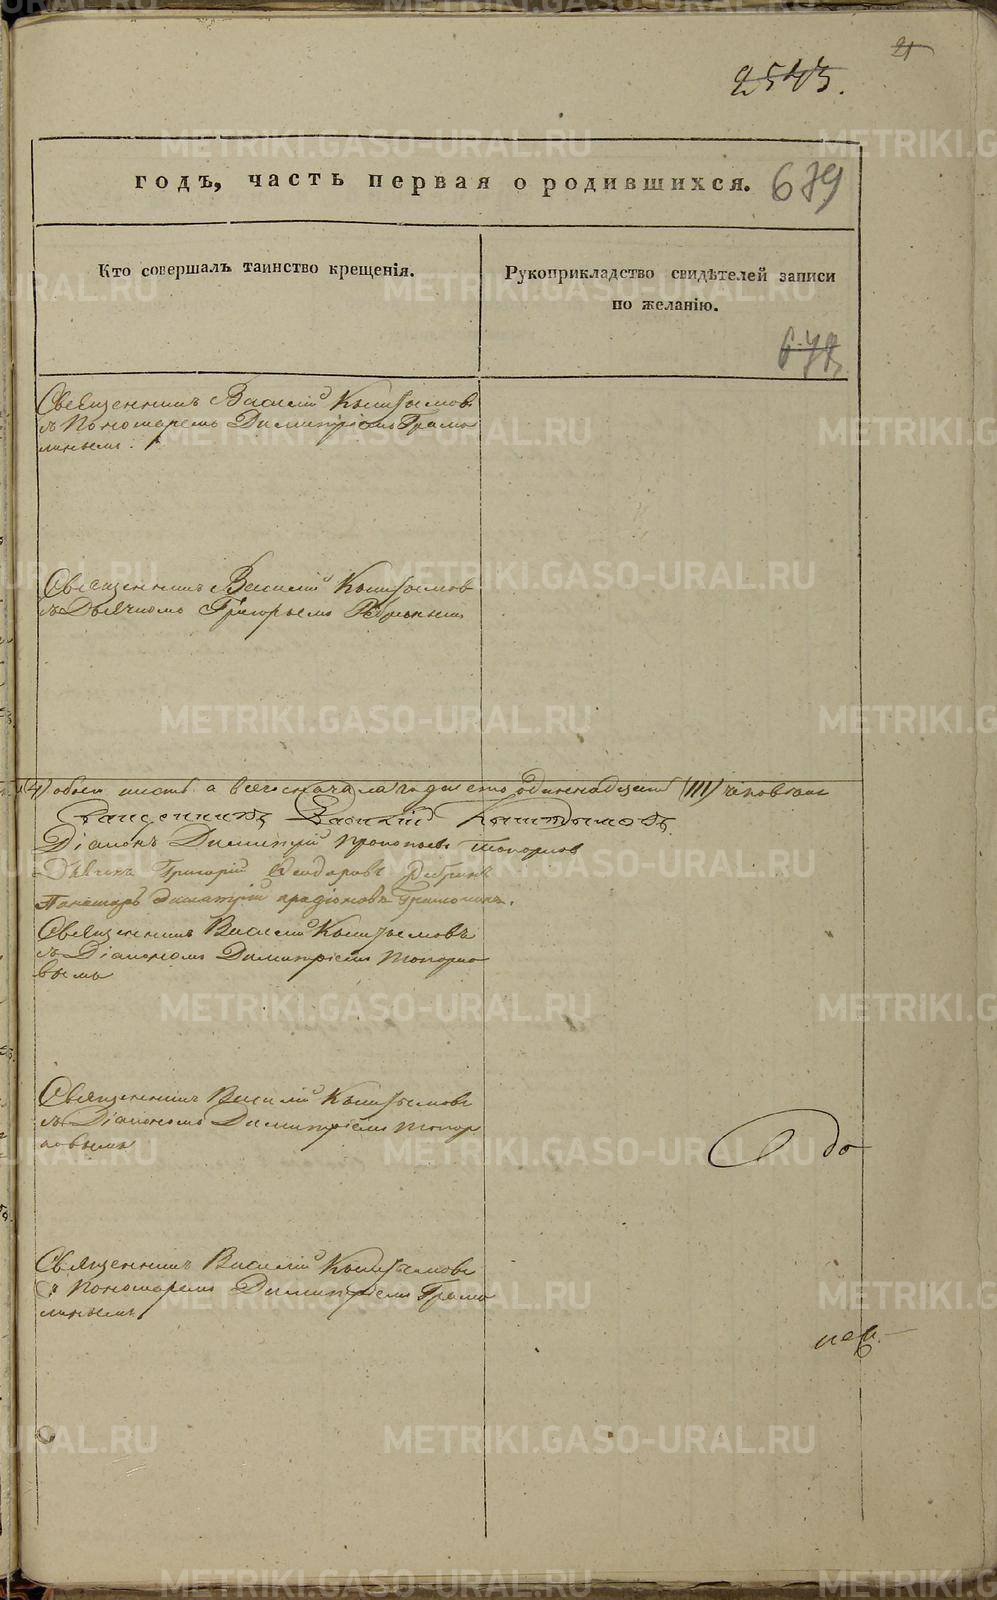 21
2545.
годъ, часть первая о родившихся. 679
Кто совершалъ таинство крещенія.
Рукоприкладство свидѣтелей записи
по желанію.
Священникъ Василій Кыштымовъ
съ Пономаремъ Димитріемъ Грамо
линымъ.
Священникъ Василій Кыштымовъ
съ Дьячкомъ Григорьемъ
(4) обоего а всего съ начала года сто одиннадцать (111) человѣкъ
Священникъ Василій Кыштымовъ
Діаконъ Димитрій Прокопьевъ Топорковъ
Дьячекъ Григорій Феодоровъ
Пономарь Димитрій
Священникъ Василій Кыштымовъ
съ Діакономъ Димитріемъ Топорко
вымъ
Священникъ Василій Кыштымовъ
съ Діакономъ Димитріемъ Топор
ковымъ
до
Священникъ Василій Кыштымовъ
съ Пономаремъ Димитріемъ Грамо
линымъ
METRIKI.GASO-URAL.RU